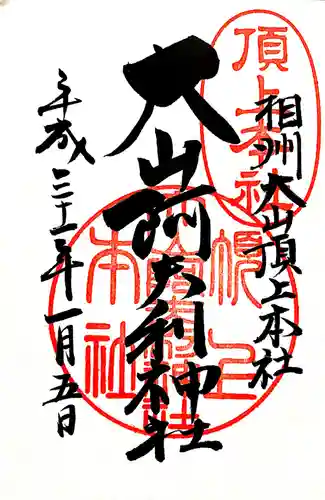 相州大山頂上本社
大山阿夫利神社
平成三十一年一月五日
頂上本社